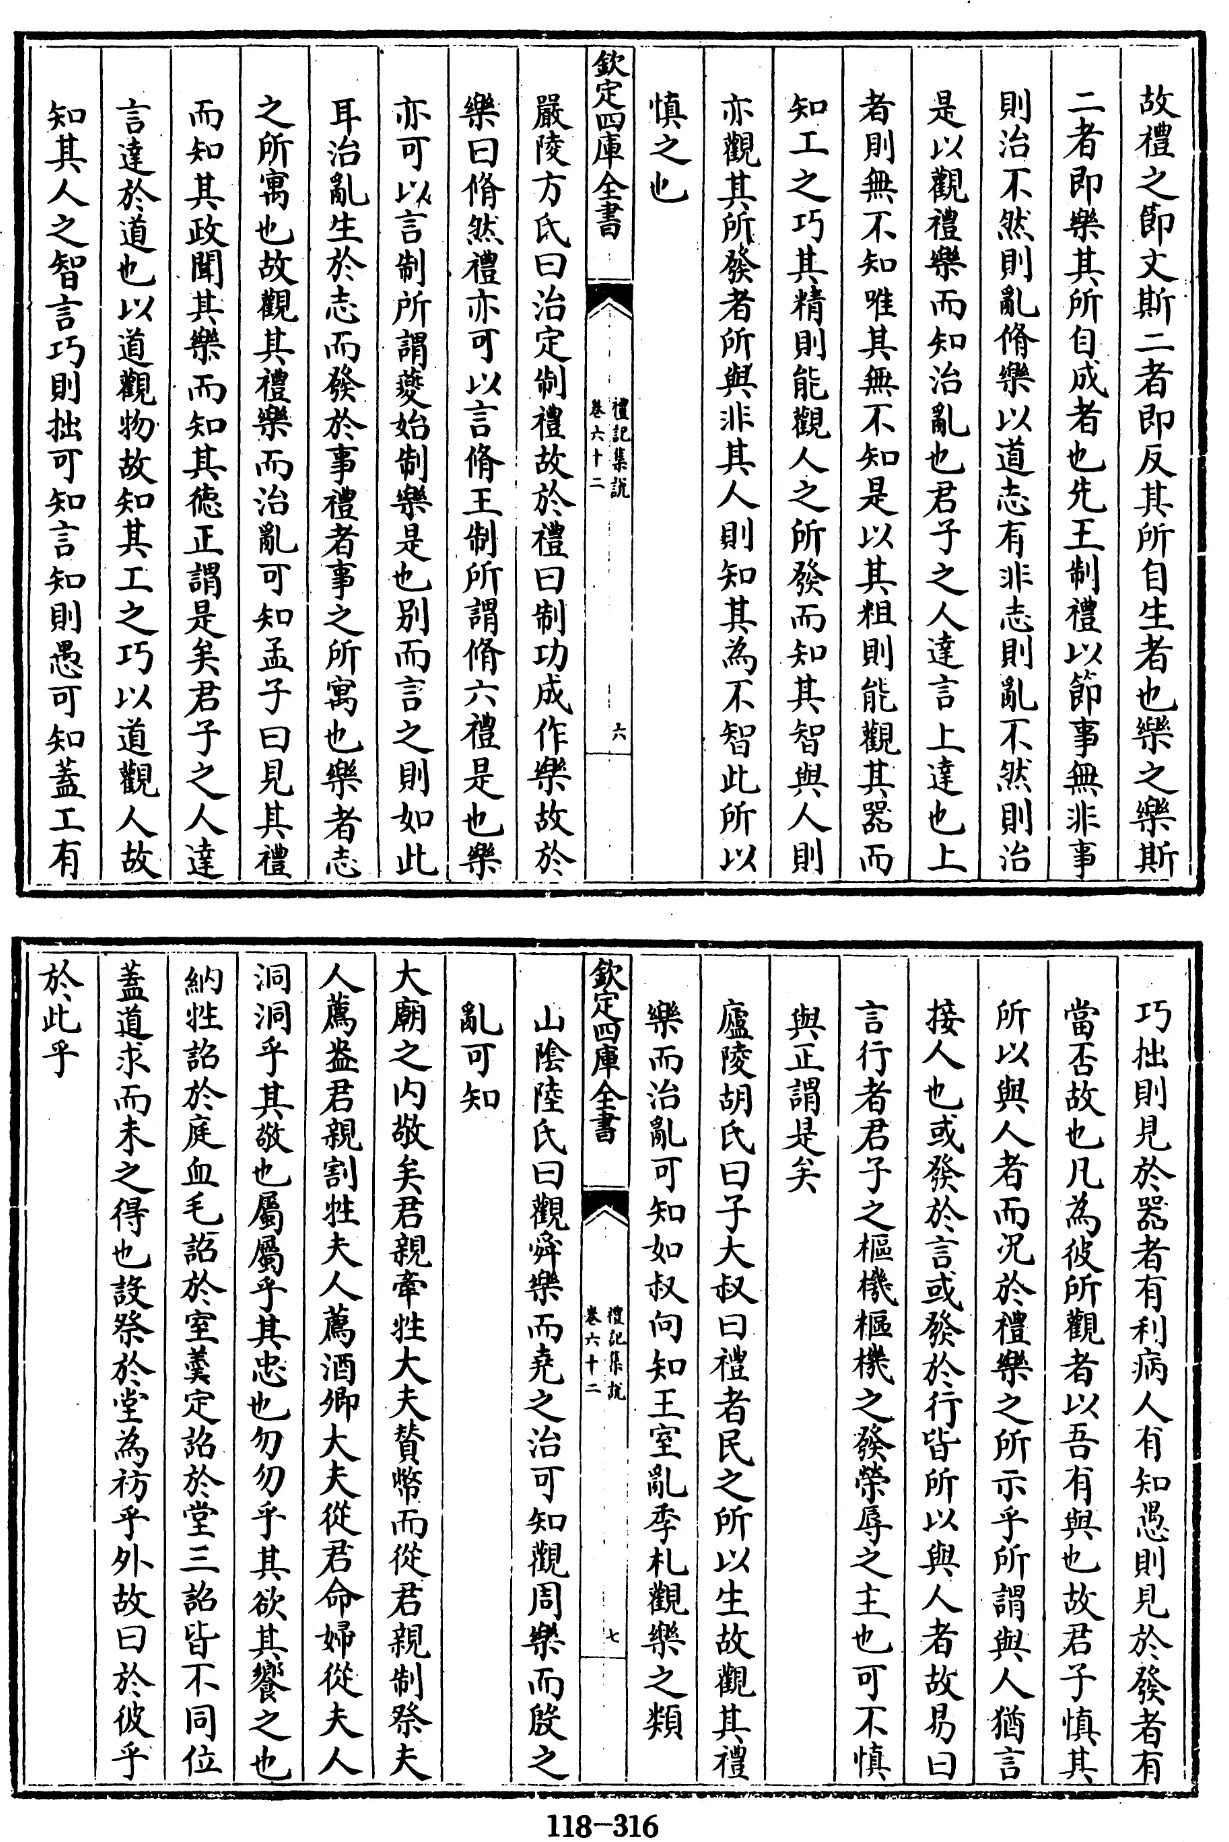 故禮之節文斯二者即反其所自生者也樂之樂斯
二者即樂其所自成者也先王制禮以節事無非事
則治不然則亂脩樂以道志有非志則亂不然則治
是以觀禮樂而知治亂也君子之人達言上達也上
者則無不知唯其無不知是以其粗則能觀其器而
知工之巧其精則能觀人之所發而知其智與人則
亦觀其所發者所與非其人則知其為不智此所以
慎之也
欽定四庫全書
禮記集說
卷六十二
六
嚴陵方氏曰治定制禮故於禮曰制功成作樂故於
樂曰脩然禮亦可以言脩王制所謂脩六禮是也樂
亦可以言制所謂夔始制樂是也别而言之則如此
耳治亂生於志而發於事禮者事之所寓也樂者志
之所寓也故觀其禮樂而治亂可知孟子曰見其禮
而知其政聞其樂而知其德正謂是矣君子之人達
言達於道也以道觀物故知其工之巧以道觀人故
知其人之智言巧則拙可知言知則愚可知蓋工有
巧拙則見於器者有利病人有知愚則見於發者有
當否故也凡為彼所觀者以吾有與也故君子慎其
所以與人者而况於禮樂之所示乎所謂與人猶言
接人也或發於言或發於行皆所以與人者故易曰
言行者君子之樞機樞機之發榮辱之主也可不慎
與正謂是矣
廬陵胡氏曰子大叔曰禮者民之所以生故觀其禮
樂而治亂可知如叔向知王室亂季札觀樂之類
欽定四庫全書
禮記集說
卷六十二
七
山陰陸氏曰觀舜樂而堯之治可知觀周樂而殷之
亂可知
大廟之内敬矣君親牽牲大夫贊幣而從君親制祭夫
人薦盎君親割牲夫人薦酒卿大夫從君命婦從夫人
洞洞乎其敬也屬屬乎其忠也勿勿乎其欲其饗之也
納牲詔於庭血毛詔於室羹定詔於堂三詔皆不同位
蓋道求而未之得也設祭於堂為祊乎外故曰於彼乎
於此乎
118-316